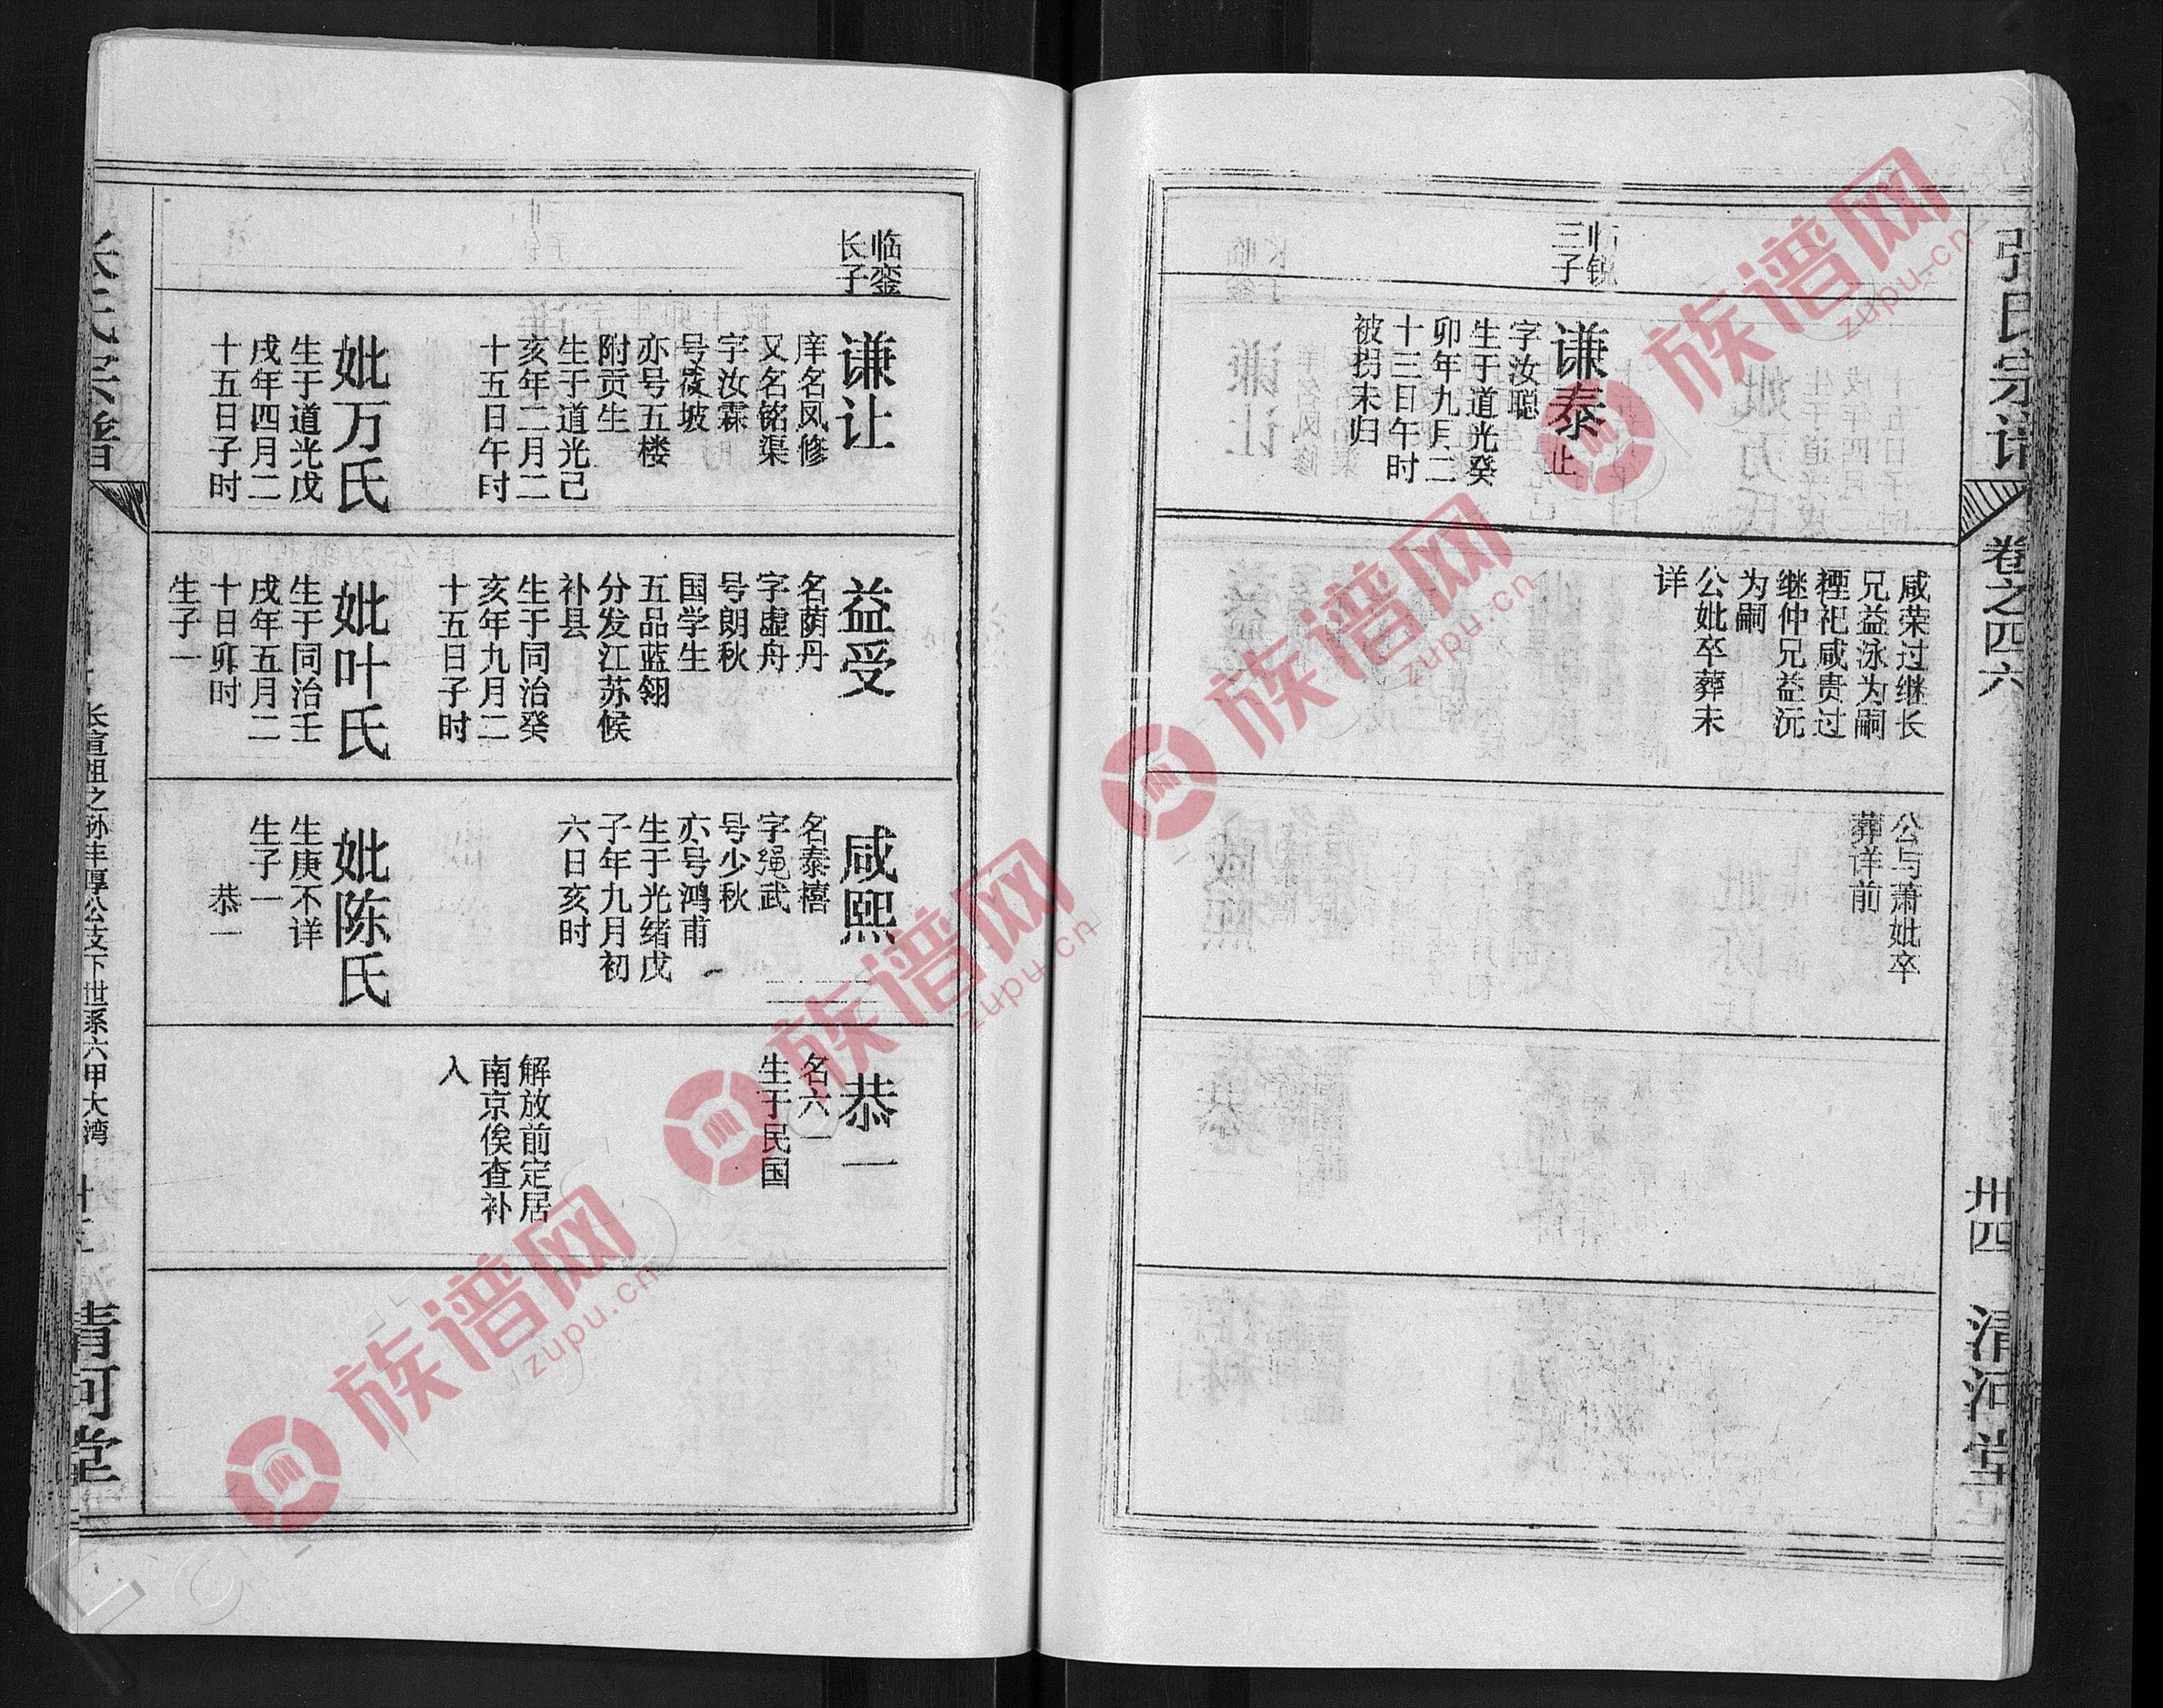 张氏宗谱
卷之四六
卅四
清河堂
临锐
三子
谦泰止
字汝聪
生于道光癸
卯年九月二
十三日午时
被拐未归
咸荣过继长
兄益泳为嗣
禋祀咸贵过
继仲兄益沅
为嗣
公妣卒葬未
详
公与萧妣卒
葬详前
临銮
长子
谦让
庠名凤修
又名铭渠
字汝霖
号筱坡
亦号五楼
附贡生
生于道光己
亥年二月二
十五日午时
妣万氏
生于道光戊
戌年四月二
十五日子时
益受
名荫丹
字虚舟
号朗秋
国学生
五品蓝翎
分发江苏候
补县
生于同治癸
亥年九月二
十五日子时
妣叶氏
生于同治壬
戌年五月二
十日卯时
生子一
咸熙
名泰禧
字绳武
号少秋
亦号鸿甫
生于光绪戊
子年九月初
六日亥时
妣陈氏
生庚不详
生子一
恭一
恭一
名六一
生于民国
解放前定居
南京俟查补
入
世系六甲大湾
清河堂
族谱网
zupu.cn
族谱网
zupu.cn
族谱网
zupu.cn
族谱网
zupu.cn